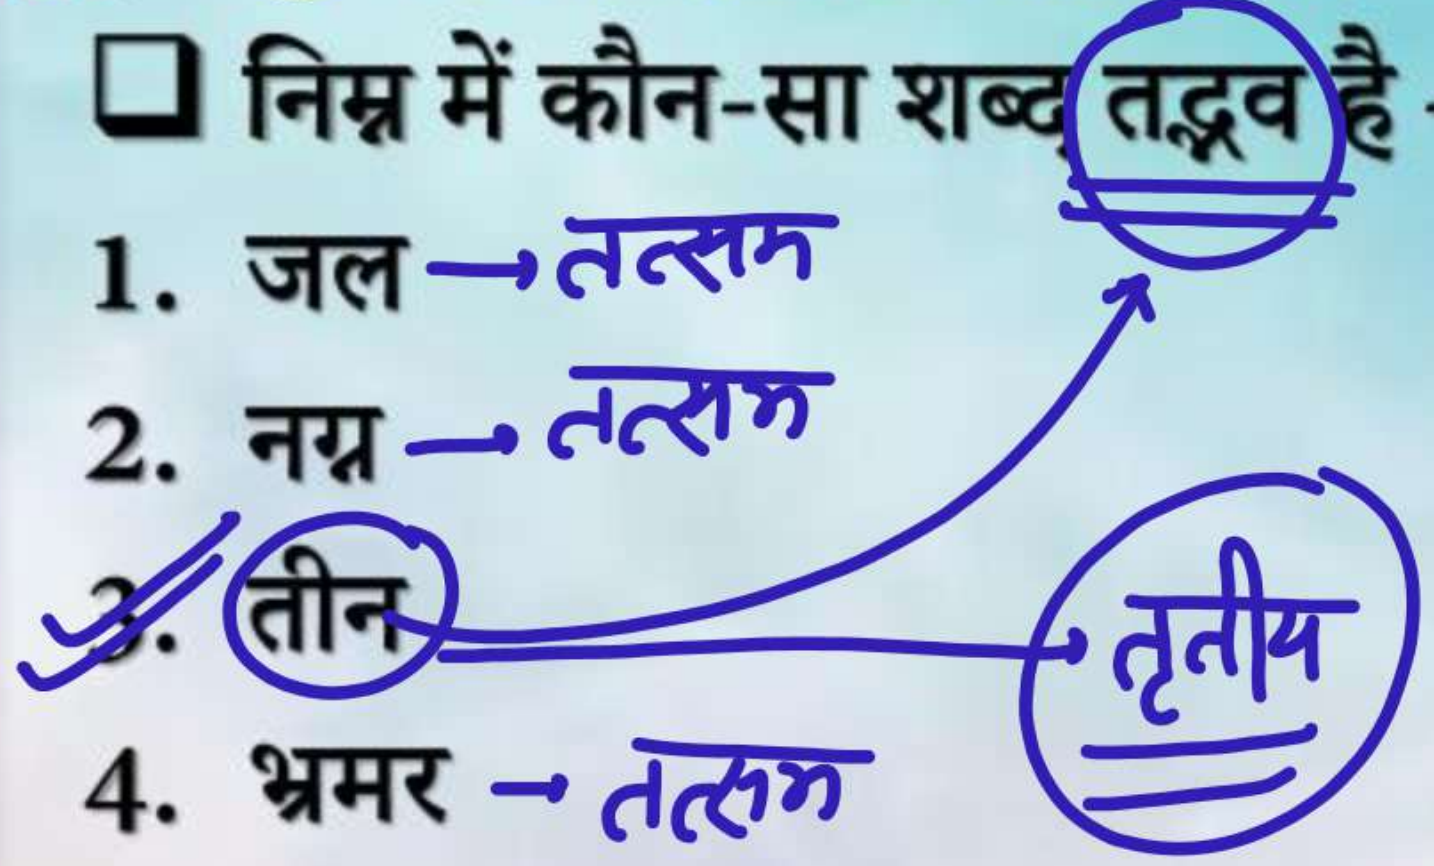 ❑ निम्न में कौन-सा शब्द तद्भव है -
1. जल → तत्सम
2. नग्न → तत्सम
3. तीन → तृतीय
4. भ्रमर → तत्सम